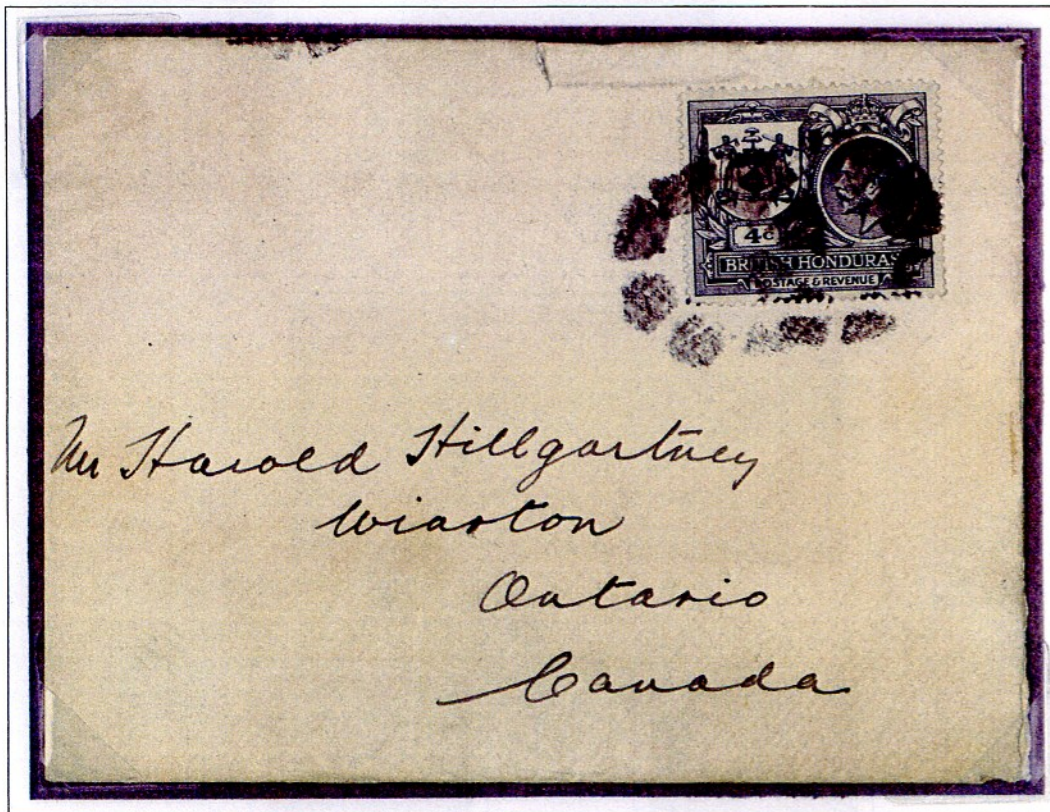 4c
BRITISH HONDURAS
POSTAGE & REVENUE
Mr Harold Hillgartney
Wiarton
Ontario
Canada